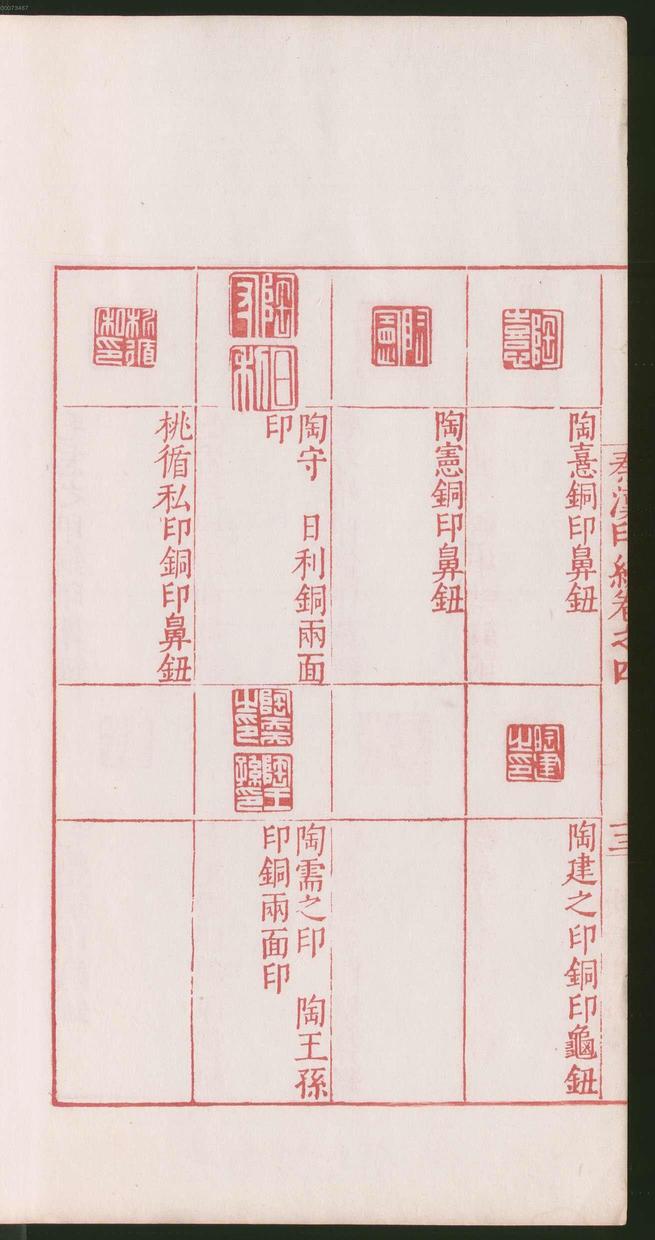 00073467
秦漢印統卷之四
三
陶憙
陶憙銅印鼻鈕
陶建之印
陶建之印銅印龜鈕
陶憲銅印鼻鈕
日利
陶守　日利銅兩面
印
陶需之印
陶王孫印
陶需之印　陶王孫
印銅兩面印
桃循私印
桃循私印銅印鼻鈕